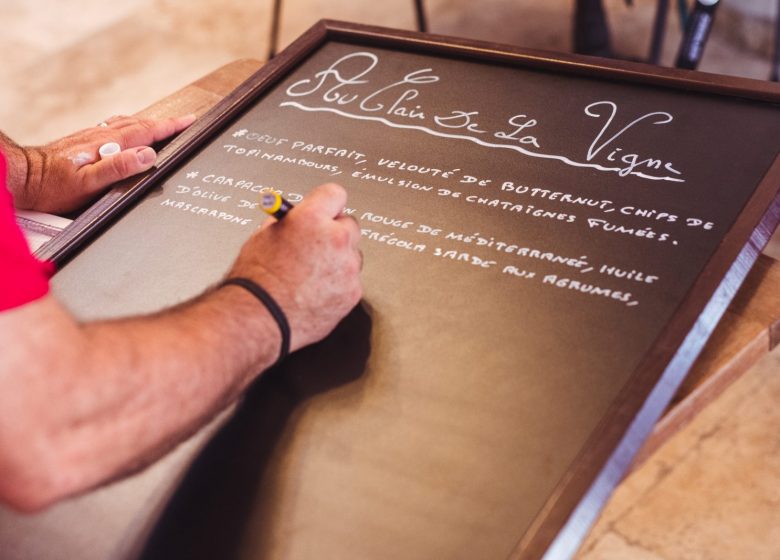 Au Clair De La Vigne
#OEUF PARFAIT, VELOUTÉ DE BUTTERNUT, CHIPS DE
TOPINAMBOURS, EMULSION DE CHATAIGNES FUMÉES.
#CARPACCIO D ROUGE DE MÉDITERRANÉE, HUILE
D'OLIVE DE FRÉGOLA SARDE AUX AGRUMES,
MASCARPONE